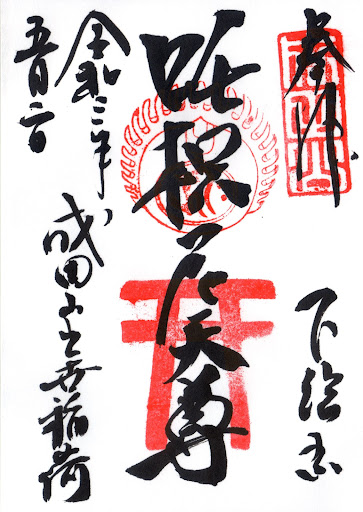 奉拝
下総国
吒枳尼天尊
令和三年
五月二日
成田山出世稲荷